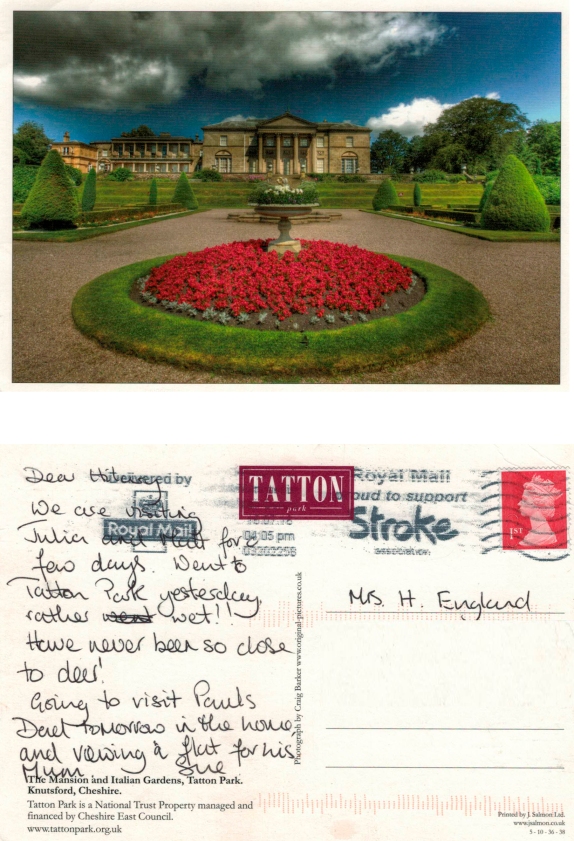 Dear Hilary
We are visiting
Julia and Matt for a
few days. Went to
Tatton Park yesterday,
rather went wet!!
Have never been so close
to deer!
Going to visit Pauls
Dad tomorrow in the home,
and viewing a flat for his
Mum. Sue
Delivered by
Royal Mail
TATTON
park
04:05 pm
03202258
Royal Mail
proud to support
Stroke
association
1ST
Mrs. H. England
Photograph by Craig Barker www.original-pictures.co.uk
The Mansion and Italian Gardens, Tatton Park.
Knutsford, Cheshire.
Tatton Park is a National Trust Property managed and
financed by Cheshire East Council.
www.tattonpark.org.uk
Printed by J. Salmon Ltd.
www.jsalmon.co.uk
5 - 10 - 36 - 38